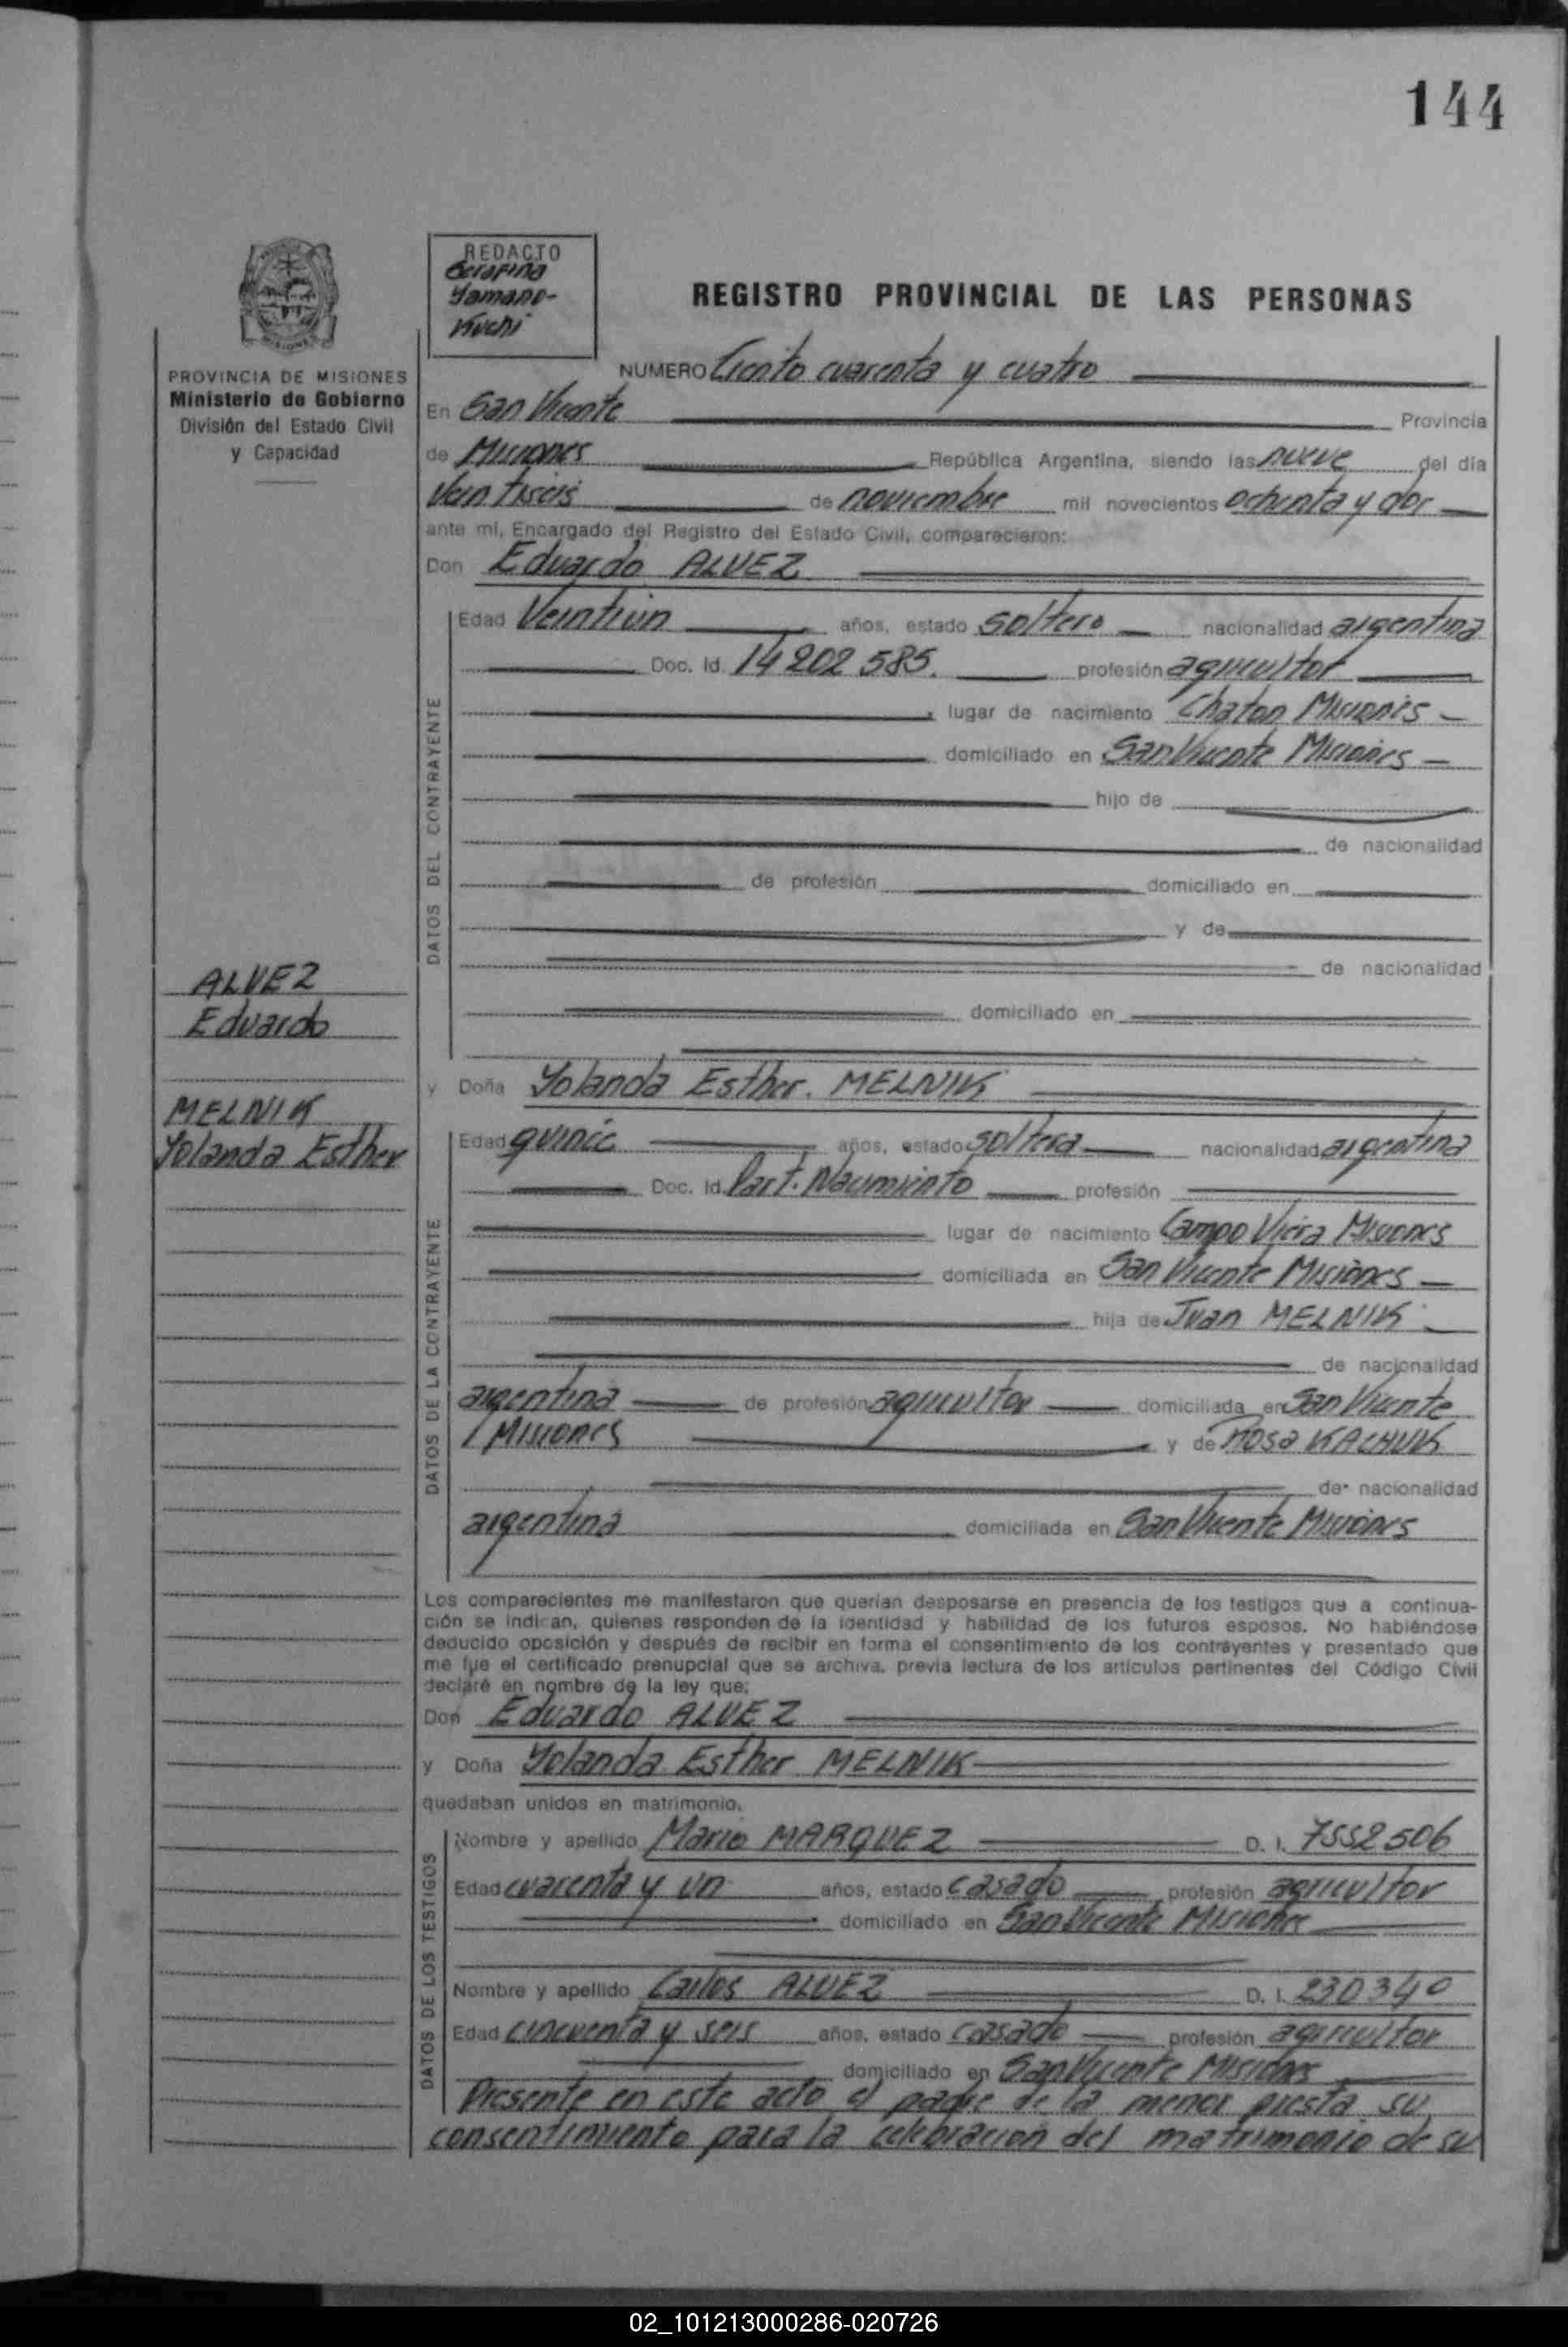 144
REDACTO
Serafina
Yamano-
Kuchi
REGISTRO PROVINCIAL DE LAS PERSONAS
PROVINCIA DE MISIONES
Ministerio de Gobierno
División del Estado Civil
y Capacidad
NUMERO Ciento cuarenta y cuatro
En San Vicente Provincia
de Misiones República Argentina, siendo las nueve del día
Veintiseis de noviembre mil novecientos ochenta y dos
ante mí, Encargado del Registro del Estado Civil, comparecieron:
Don Eduardo ALVEZ
DATOS DEL CONTRAYENTE
Edad Veintiun años, estado soltero nacionalidad argentina
Doc. Id. 14202585. profesión agricultor
lugar de nacimiento Chaton Misiones
domiciliado en San Vicente Misiones
hijo de
de nacionalidad
de profesión domiciliado en
y de
de nacionalidad
domiciliado en
ALVEZ
Eduardo
MELNIK
Yolanda Esther
y Doña Yolanda Esther. MELNIK
DATOS DE LA CONTRAYENTE
Edad quince años, estado soltera nacionalidad argentina
Doc. Id. Part. Nacimiento profesión
lugar de nacimiento Campo Viera Misiones
domiciliada en San Vicente Misiones
hija de Juan MELNIK
de nacionalidad
argentina de profesión agricultor domiciliada en San Vicente
Misiones y de Rosa KACHUK
de nacionalidad
argentina domiciliada en San Vicente Misiones
Los comparecientes me manifestaron que querían desposarse en presencia de los testigos que a continua-
ción se indican, quienes responden de la identidad y habilidad de los futuros esposos. No habiéndose
deducido oposición y después de recibir en forma el consentimiento de los contrayentes y presentado que
me fue el certificado prenupcial que se archiva, previa lectura de los artículos pertinentes del Código Civil
declaré en nombre de la ley que:
Don Eduardo ALVEZ
y Doña Yolanda Esther MELNIK
quedaban unidos en matrimonio.
DATOS DE LOS TESTIGOS
Nombre y apellido Mario MARQUEZ D. I. 7552506
Edad cuarenta y un años, estado casado profesión agricultor
domiciliado en San Vicente Misiones
Nombre y apellido Carlos ALVEZ D. I. 230340
Edad cincuenta y seis años, estado casado profesión agricultor
domiciliado en San Vicente Misiones
Presente en este acto el padre de la menor presta su
consentimiento para la celebracion del matrimonio de su
02_101213000286-020726